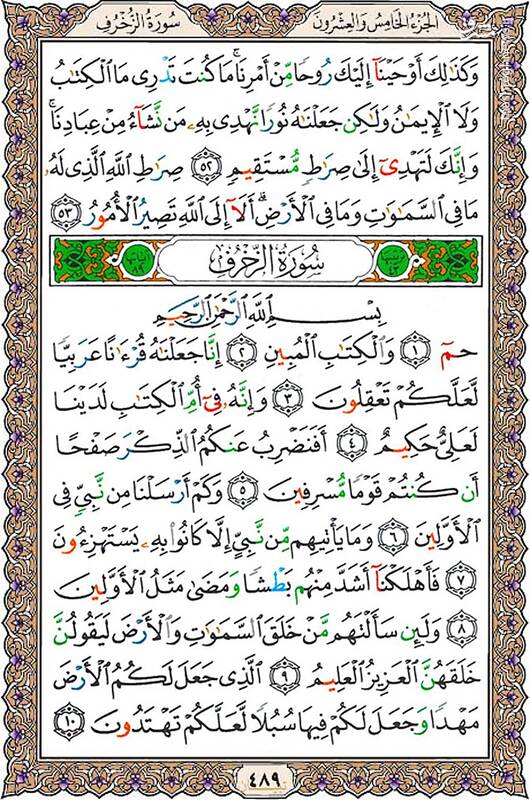 الجزء الخامس والعشرون سورة الزخرف
وَكَذَٰلِكَ أَوْحَيْنَآ إِلَيْكَ رُوحًا مِّنْ أَمْرِنَا ۚ مَا كُنتَ تَدْرِى مَا ٱلْكِتَـٰبُ
وَلَا ٱلْإِيمَـٰنُ وَلَـٰكِن جَعَلْنَـٰهُ نُورًا نَّهْدِى بِهِۦ مَن نَّشَآءُ مِنْ عِبَادِنَا ۚ
وَإِنَّكَ لَتَهْدِىٓ إِلَىٰ صِرَٰطٍ مُّسْتَقِيمٍ ٥٢ صِرَٰطِ ٱللَّهِ ٱلَّذِى لَهُۥ
مَا فِى ٱلسَّمَـٰوَٰتِ وَمَا فِى ٱلْأَرْضِ ۗ أَلَآ إِلَى ٱللَّهِ تَصِيرُ ٱلْأُمُورُ ٥٣
ترتيبها ٤٣ سُورَةُ الزُّخْرُفِ آياتها ٨٩
بِسْمِ ٱللَّهِ ٱلرَّحْمَـٰنِ ٱلرَّحِيمِ
حمٓ ١ وَٱلْكِتَـٰبِ ٱلْمُبِينِ ٢ إِنَّا جَعَلْنَـٰهُ قُرْءَٰنًا عَرَبِيًّا
لَّعَلَّكُمْ تَعْقِلُونَ ٣ وَإِنَّهُۥ فِىٓ أُمِّ ٱلْكِتَـٰبِ لَدَيْنَا
لَعَلِىٌّ حَكِيمٌ ٤ أَفَنَضْرِبُ عَنكُمُ ٱلذِّكْرَ صَفْحًا
أَن كُنتُمْ قَوْمًا مُّسْرِفِينَ ٥ وَكَمْ أَرْسَلْنَا مِن نَّبِىٍّ فِى
ٱلْأَوَّلِينَ ٦ وَمَا يَأْتِيهِم مِّن نَّبِىٍّ إِلَّا كَانُوا۟ بِهِۦ يَسْتَهْزِءُونَ
٧ فَأَهْلَكْنَآ أَشَدَّ مِنْهُم بَطْشًا وَمَضَىٰ مَثَلُ ٱلْأَوَّلِينَ
٨ وَلَئِن سَأَلْتَهُم مَّنْ خَلَقَ ٱلسَّمَـٰوَٰتِ وَٱلْأَرْضَ لَيَقُولُنَّ
خَلَقَهُنَّ ٱلْعَزِيزُ ٱلْعَلِيمُ ٩ ٱلَّذِى جَعَلَ لَكُمُ ٱلْأَرْضَ
مَهْدًا وَجَعَلَ لَكُمْ فِيهَا سُبُلًا لَّعَلَّكُمْ تَهْتَدُونَ ١٠
٤٨٩